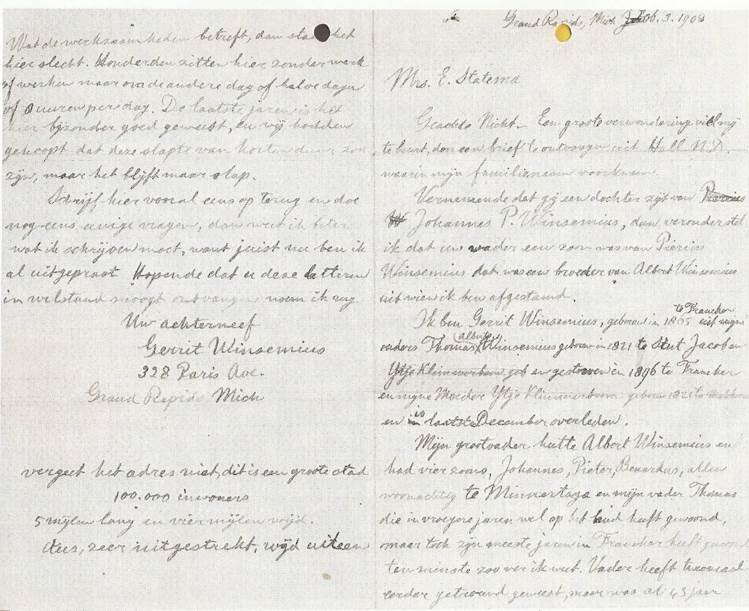 Wat de werkzaamheden betreft, dan staat het
hier slecht. Honderden zitten hier zonder werk
of werken maar om de andere dag of halve dagen
of 8 uuren per dag. De laatste jaren is het
hier bijzonder goed geweest, en wij hadden
gehoopt dat deze slapte van korten duur zou
zijn, maar het blijft maar slap.
Schrijf hier vooral eens op terug en doe
nog eens eenige vragen, dan weet ik beter
wat ik schrijven moet, want juist nu ben ik
al uitgepraat. Hopende dat u deze letteren
in welstand moogt ontvangen noem ik mij
Uw achterneef
Gerrit Winsemius
328 Paris Ave.
Grand Rapids Mich
vergeet het adres niet, dit is een groote stad
100.000 inwoners
5 mijlen lang en vier mijlen wijd.
dus, zeer uitgestrekt, wijd uiteen
Grand Rapids, Mich Feb. 3. 190
Mrs. E. Statema
Geachte Nicht – Een groote verwondering viel mij
te beurt, den een brief te ontvangen uit Hull N.D.
waarin mijn familienaam voorkwam.
Vernemende dat gij een dochter zijt van
Johannes P. Winsemius, dan veronderstel
ik dat uw vader een zoon was van Piërius
Winsemius dat was een broeder van Albert Winsemius
uit wien ik ben afgestamd.
Ik ben Gerrit Winsemius, geboren in 1865 te Franeker uit mijn
vaders Thomas Alberts Winsemius geboren in 1821 te Sint Jacob en
gestorven in 1896 te Franeker
en mijne Moeder Ytje Klimmerboom geboren 1821 te
en is in laatste December overleden.
Mijn grootvader hette Albert Winsemius en
had vier zoons, Johannes, Pieter, Benardus, allen
woonachtig te Minnertsga en mijn vader Thomas
die in vroegere jaren wel op het Bild heeft gewoond,
maar toch zijn meeste jaren in Franeker heeft gewoond
ten minste zoo ver ik weet. Vader heeft tweemaal
eerder getrouwd geweest, maar was al 43 jaar